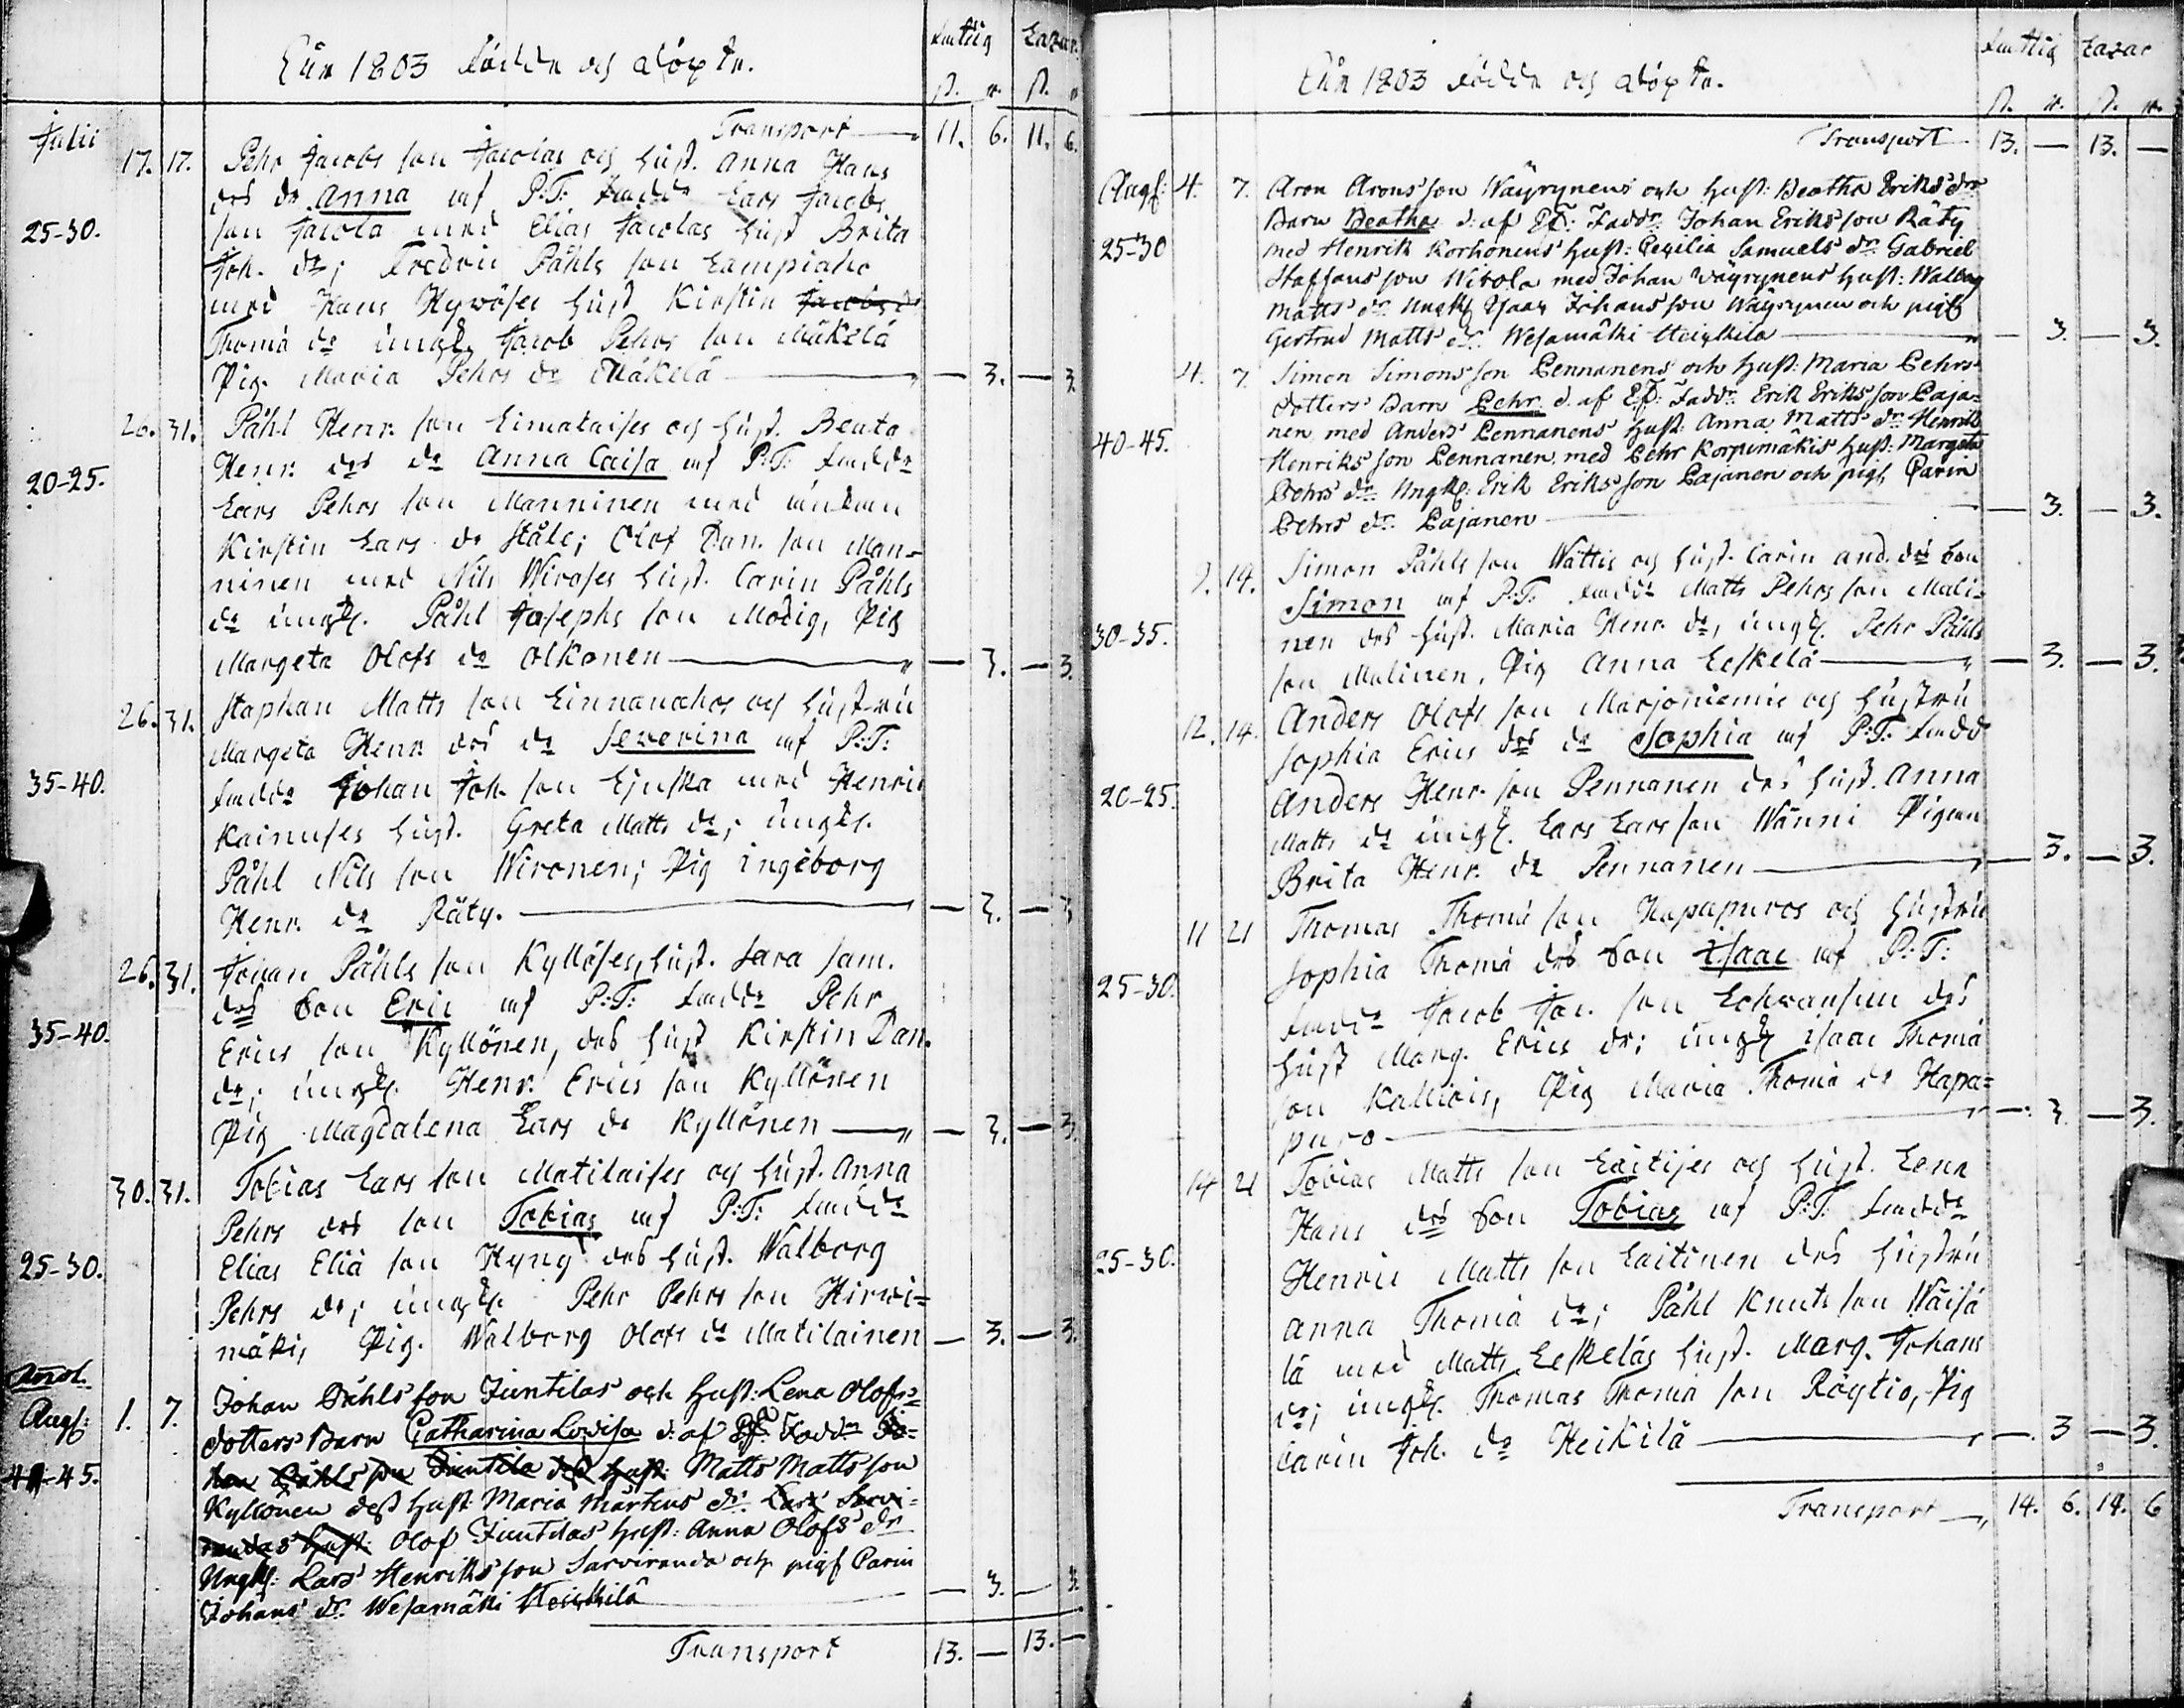 Åhr 1803 Födde och döpte.
Fattig Lazar.
ß. r. ß. r.
Julii Transport 11. 6. 11. 6.
17. 17. Pehr Jacobs son Jacolas och hust. Anna Hans
drs dr Anna af P:T: faddr Lars Jacobs
25-30. son Jacola med Elias Jacolas hust Brita
Joh. dr; Fredric Påhls son Lampiaho
med Hans Hyvöses hust Kirstin Jacobs dr
Thomä dr ungk. Jacob Pehrs son Mäkelä
Pig. Maria Pehrs dr Mäkelä — 3. — 3.
26. 31. Påhl Henr. son Limataises och hust. Beata
Henr. drs dr Anna Caisa af P:T: faddr
20-25. Lars Pehrs son Manninen med
Kirstin Lars dr Ståle; Olof Dan. son Man-
ninen med Nils Wiroses hust. Carin Påhls
dr ungk. Påhl Josephs son Modig, Pig
Margeta Olofs dr Olkonen — 3. — 3.
26. 31. Staphan Matts son Linnanahos och hustru
Margeta Henr. drs dr Severina af P:T:
35-40. faddr Johan Joh. son med Henric
Kainuses hust. Greta Matts dr; ungk.
Påhl Nils son Wironen; Pig Ingeborg
Henr. dr Räty. — 3. — 3
26. 31. Johan Påhls son Kyllöses, hust. Sara Sam.
drs son Eric af P:T: faddr Pehr
35-40. Erics son Kyllönen, des hust Kirstin Dan.
dr; ungk. Henr. Erics son Kyllönen
Pig Magdalena Lars dr Kyllönen — 3. — 3.
30. 31. Tobias Lars son Matilaises och hust. Anna
Pehrs drs son Tobias af P:T: faddr
25-30. Elias Eliä son Hyng des hust. Walborg
Pehrs dr; ungk. Pehr Pehrs son Hirvi=
mäki, Pig. Walborg Olofs dr Matilainen — 3. — 3.
Augs: 1. 7. Johan Påhls son Juntilas och Hust: Lena Olofs=
dotters Barn Catharina Lovisa d: af Faddr Jo=
45. han Påhls son Juntila dess Hust: Matts Matts son
Kyllönen dess Hust: Maria Mårtens dr. Lars Sarvi-
randas Hust: Olof Juntilas Hust: Anna Olofs dr
Ungk: Lars Henriks son Sarviranda och pig Carin
Johans dr. Wesamäki Heickilä — 3. — 3.
Transport 13. — 13. —
Åhr 1803 Födde och döpte.
Fattig Lazar
ß. r. ß. r.
Transport 13. — 13. —
Augs: 4. 7. Aron Arons son Wäyrynens och Hust: Beatha Eriks drs
Barn Beatha d: af Faddr. Johan Eriks son Räty
25-30 med Henrik Korhonens Hust: Cecilia Samuels dr. Gabriel
Staffans son Nivola med Johan Wäyrynens Hust: Walborg
Matts dr. Ungk: Ysaac Johans son Wäyrynen och pig
Gertrud Matts dr. Wesamäki Heickilä — 3. — 3.
4. 7. Simon Simons son Pennanens och Hust: Maria Pehrs
dotters Barn Pehr d. af Faddr. Erik Eriks son Paja=
nen med Anders Pennanens Hust: Anna Matts dr. Henrik
40-45. Henriks son Pennanen med Pehr Korpimäkis Hust: Margeta
Pehrs dr. Ungk: Erik Eriks son Pajanen och pig Carin
Pehrs dr. Pajanen — 3. — 3.
9. 14. Simon Påhls son Wättis och hust. Carin And. drs son
Simon af P:T: faddr Matts Pehrs son Mali-
30-35. nen des hust. Maria Henr. dr, ungk. Pehr Påhls
son Malinen, Pig Anna Leskelä — 3. — 3.
12. 14. Anders Olofs son Marjoniemis och hustru
Sophia Erics drs dr Sophia af P:T: faddr
20-25. Anders Henr. son Pennanen des hust. Anna
Matts dr ungk. Lars Lars son Wänni Pigan
Brita Henr. dr Pennanen — 3. — 3.
11 21 Thomas Thomä son Hapapuros och hustru
Sophia Thomä drs son Isaac af P:T:
25-30. faddr Jacob son des
hust Marg. Erics dr; ungk Isaac Thomä
son Kallioif, Pig Maria Thomä dr Hapa=
puro — 3 — 3.
14 21 Tobias Matts son Laitises och hust. Lena
Hans drs son Tobias af P:T: faddr
25-30. Henric Matts son Laitinen des hustru
Anna Thomä dr; Påhl Knuts son Wäisä
lä med Matts Leskeläs hust. Marg. Johans
dr; ungk. Thomas Thomä son Röytiö, Pig
Carin Joh. dr Heikilä — 3 — 3.
Transport 14. 6. 14. 6